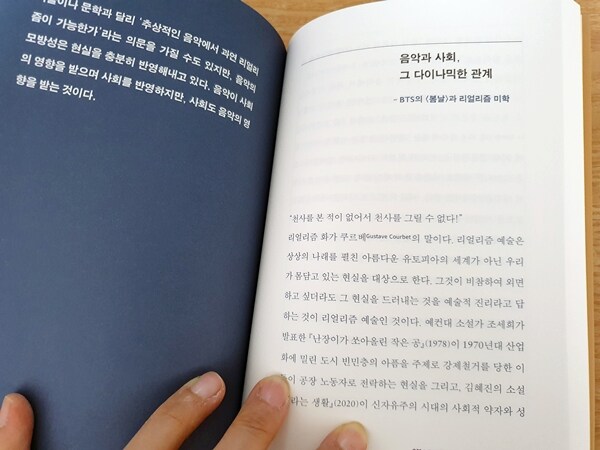 문학과 달리 '추상적인 음악에서 과연 리얼리
즘이 가능한가'라는 의문을 가질 수도 있지만, 음악의
모방성은 현실을 충분히 반영해내고 있다. 음악이 사회
의 영향을 받으며 사회를 반영하지만, 사회도 음악의 영
향을 받는 것이다.
음악과 사회,
그 다이나믹한 관계
- BTS의 〈봄날〉과 리얼리즘 미학
"천사를 본 적이 없어서 천사를 그릴 수 없다!"
리얼리즘 화가 쿠르베Gustave Courbet의 말이다. 리얼리즘 예술은
상상의 나래를 펼친 아름다운 유토피아의 세계가 아닌 우리
가 몸담고 있는 현실을 대상으로 한다. 그것이 비참하여 외면
하고 싶더라도 그 현실을 드러내는 것을 예술적 진리라고 답
하는 것이 리얼리즘 예술인 것이다. 예컨대 소설가 조세희가
발표한 『난장이가 쏘아올린 작은 공』(1978)이 1970년대 산업
화에 밀린 도시 빈민층의 아픔을 주제로 강제철거를 당한 이
들이 공장 노동자로 전락하는 현실을 그리고, 김혜진의 소설
라는 생활』(2020)이 신자유주의 시대의 사회적 약자와 성